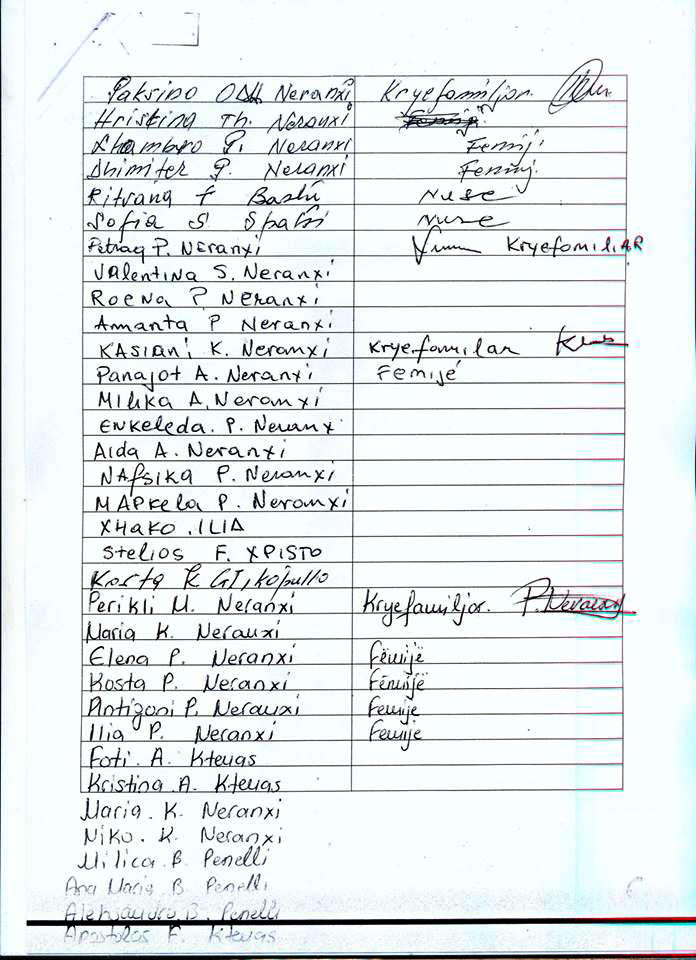 Paksino Neranxi Kryefamiljar.
Hristina Th. Neranxi
Dhambro P. Neranxi Femij.
Dhimiter P. Neranxi Femij.
Ritvana F Bashi Nuse
Sofia S Spahi Nuse
Petraq P. Neranxi Kryefomiliar
Valentina S. Neranxi
Roena P Neranxi
Amanta P Neranxi
Kasiani K. Neranxi Kryefamilar
Panajot A. Neranxi Femijé
Milika A. Neranxi
Enkeleda. P. Neranx
Aida A. Neranxi
Nafsika P. Neranxi
Mapkela P. Neranxi
Xhako . Ilia
Stelios F. Xpisto
Kosta K
Perikli M. Neranxi Kryefamiljar. P. Neranxi
Maria K. Neranxi
Elena P. Neranxi Fëmijë
Kosta P. Neranxi Fëmijë
Antigoni P. Neranxi Femije
Ilia P. Neranxi Femije
Foti. A. Ktenas
Kristina. A. Ktenas
Maria. K. Neranxi
Niko. K. Neranxi
Milica. B. Penelli
Ana Maria. B. Penelli
Aleksandro. B. Penelli
Apostolos F. Ktenas